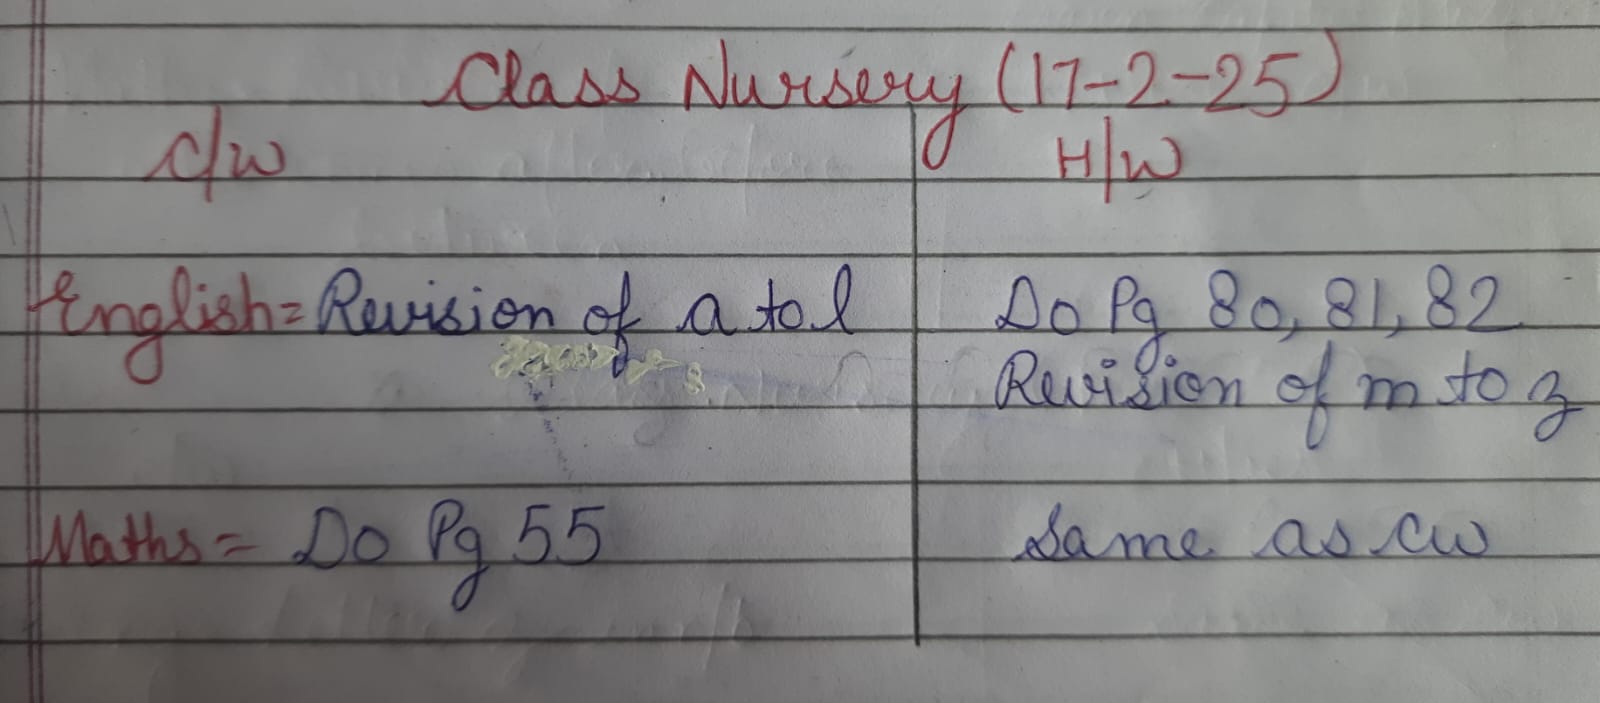 Class Nursery (17-2-25)
C/W H/W
English = Revision of a to l Do Pg 80, 81, 82
Revision of m to z
Maths = Do Pg 55 Same as cw